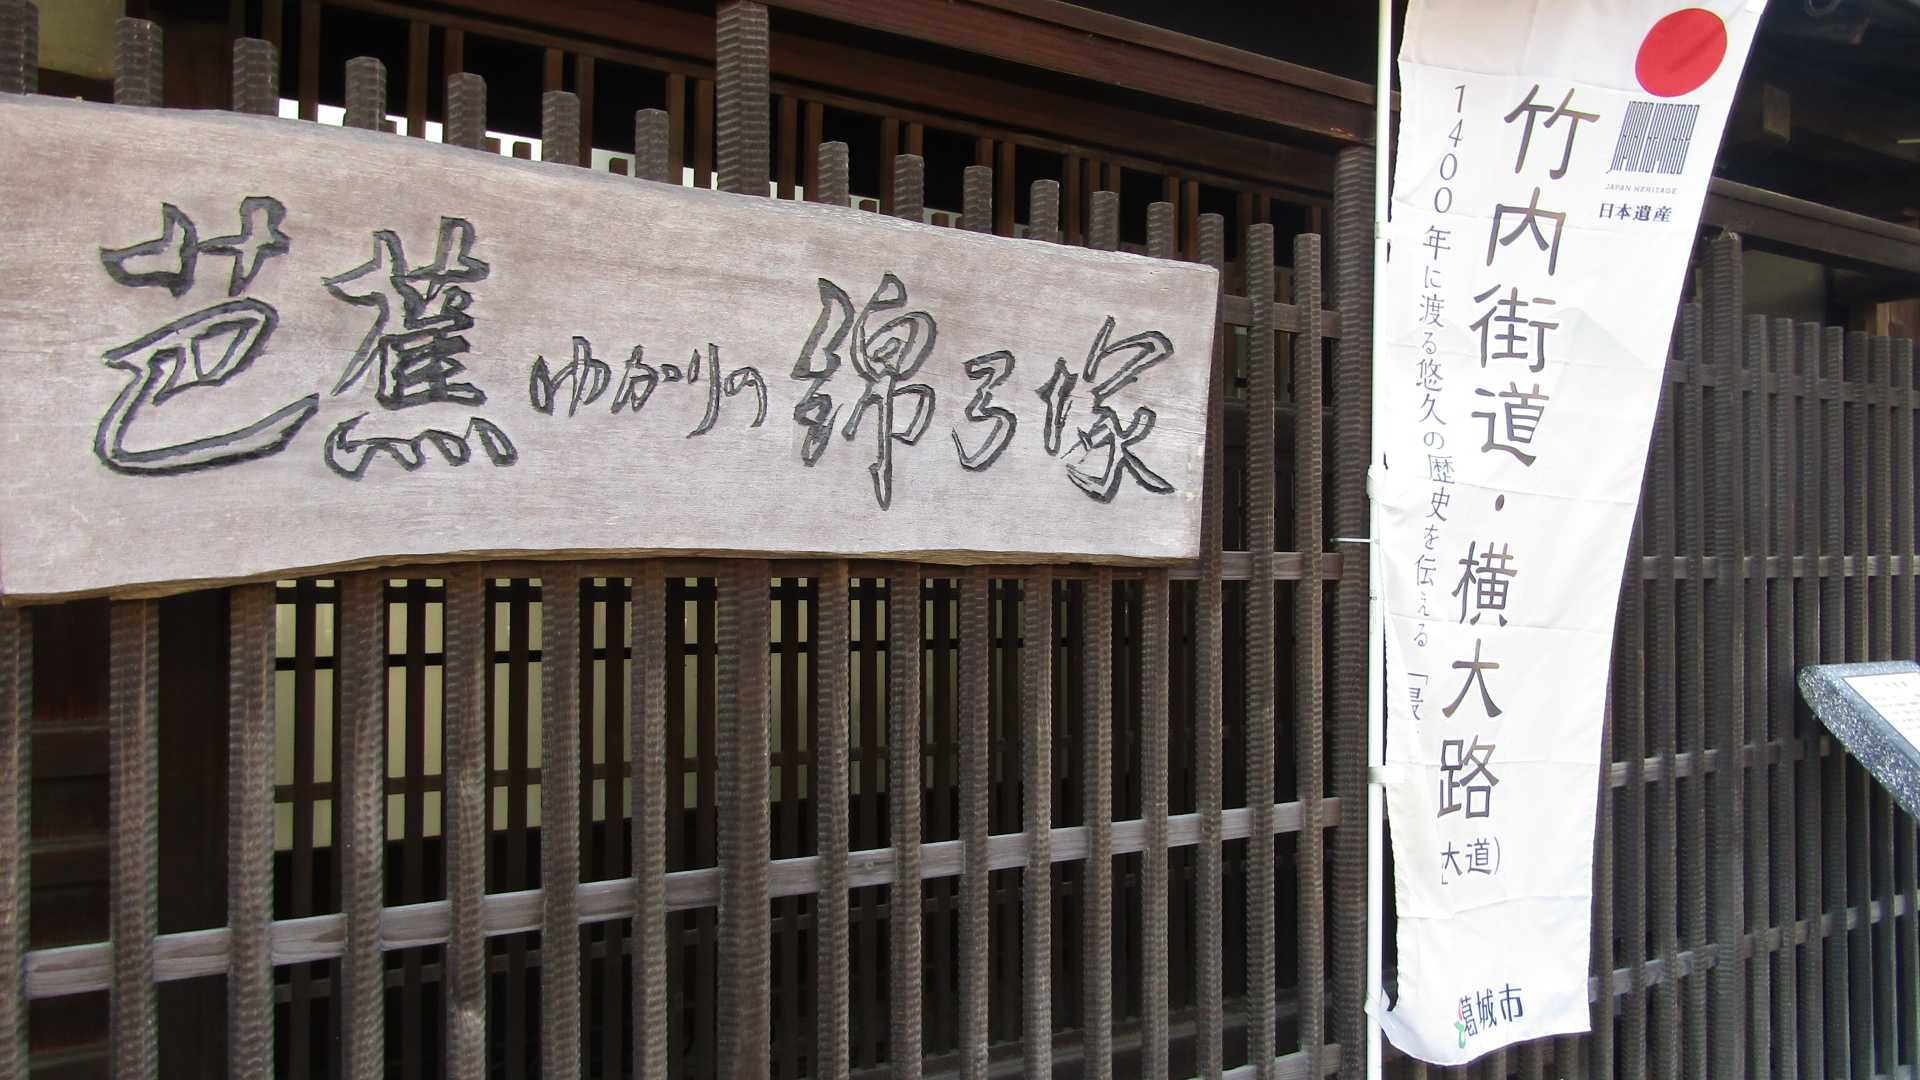 芭蕉ゆかりの錦弓塚
JAPAN HERITAGE
日本遺産
竹内街道・横大路
大道)
1400年に渡る悠久の歴史を伝える「最
葛城市